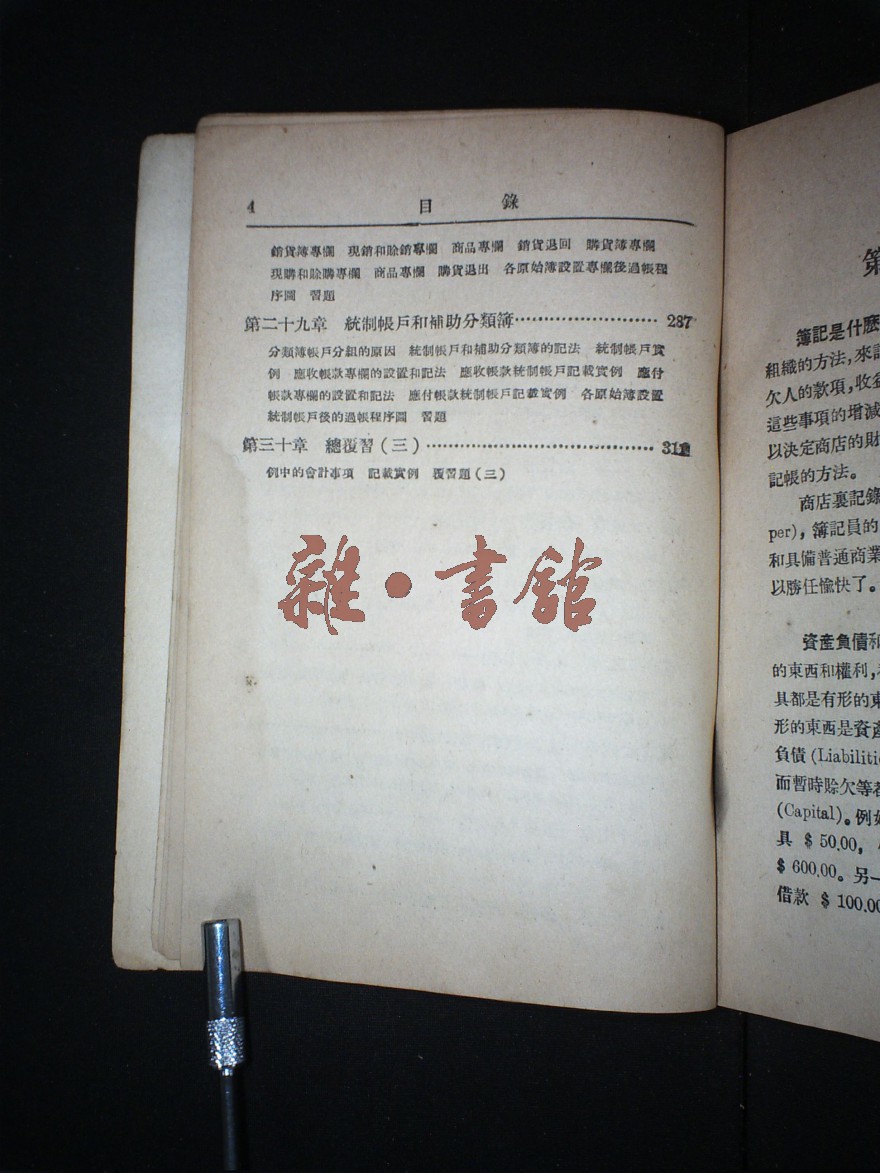 4 目錄
銷貨簿專欄 現銷和賒銷專欄 商品專欄 銷貨退回 購貨簿專欄
現購和賒購專欄 商品專欄 購貨退出 各原始簿設置專欄後過帳程
序圖 習題
第二十九章 統制帳戶和補助分類簿 287
分類簿帳戶分組的原因 統制帳戶和補助分類簿的記法 統制帳戶實
例 應收帳款專欄的設置和記法 應收帳款統制帳戶記載實例 應付
帳款專欄的設置和記法 應付帳款統制帳戶記載實例 各原始簿設置
統制帳戶後的過帳程序圖 習題
第三十章 總覆習(三) 311
例中的會計事項 記載實例 覆習題(三)
雜·書館
第
簿記是什麽
組織的方法,來記
欠人的款項,收益
這些事項的增減
以決定商店的財
記帳的方法。
商店裏記錄
per),簿記員的
和具備普通商業
以勝任愉快了。
資產負債和
的東西和權利,
具都是有形的東
形的東西是資產
負債(Liabilitie
而暫時賒欠等
(Capital)。例如
具 $50.00,
$600.00。另一
借款 $100.00